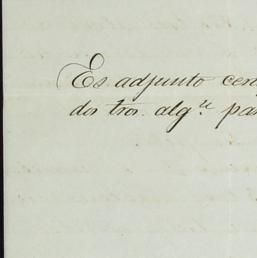 Es adjunto cer
dos tros. alg.ⁿ par